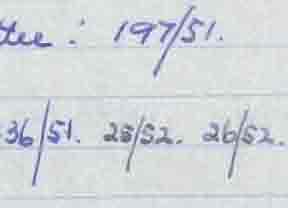 : 197/51.
36/51. 25/52. 26/52.